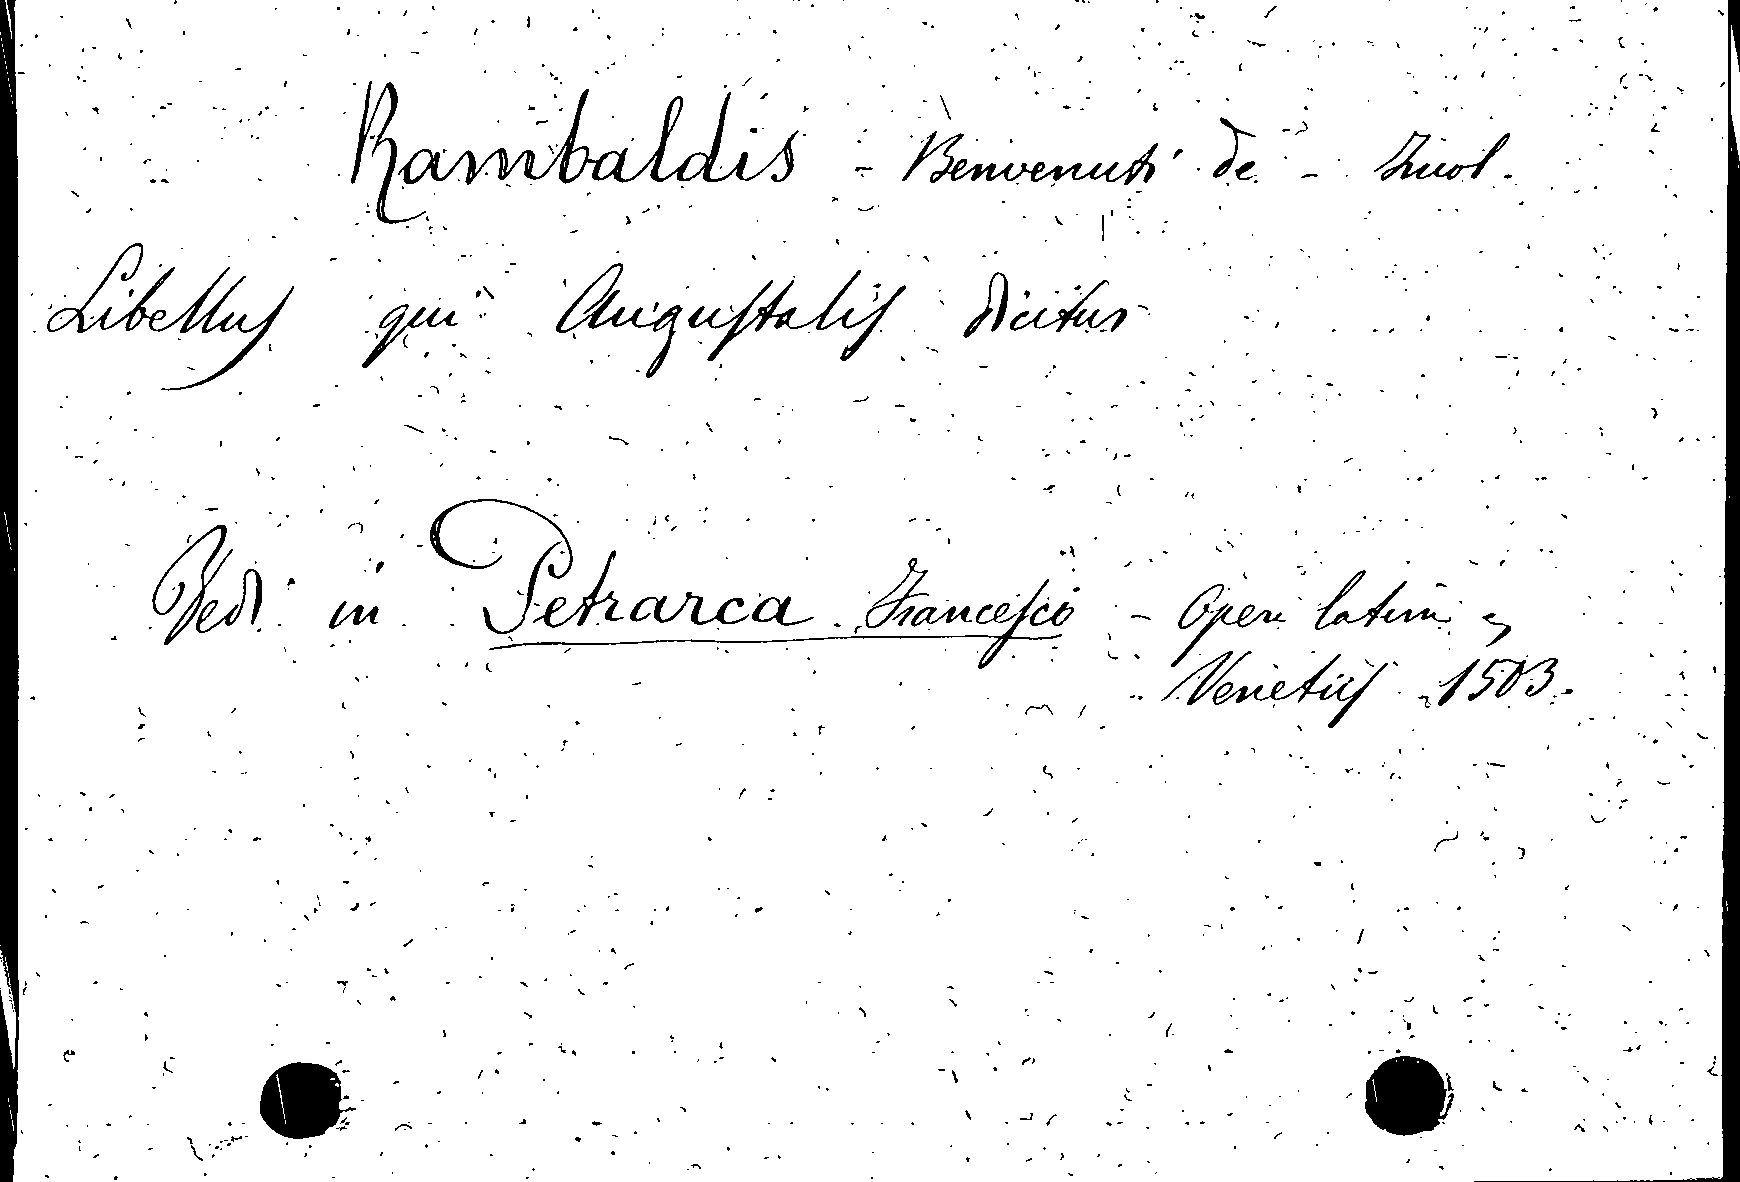 Rambaldis - Benvenuti de - Imol.
Libellus qui Augustalis dicitur
Vedi in Petrarca Francesco - Opera latina
Venetiis 1503.